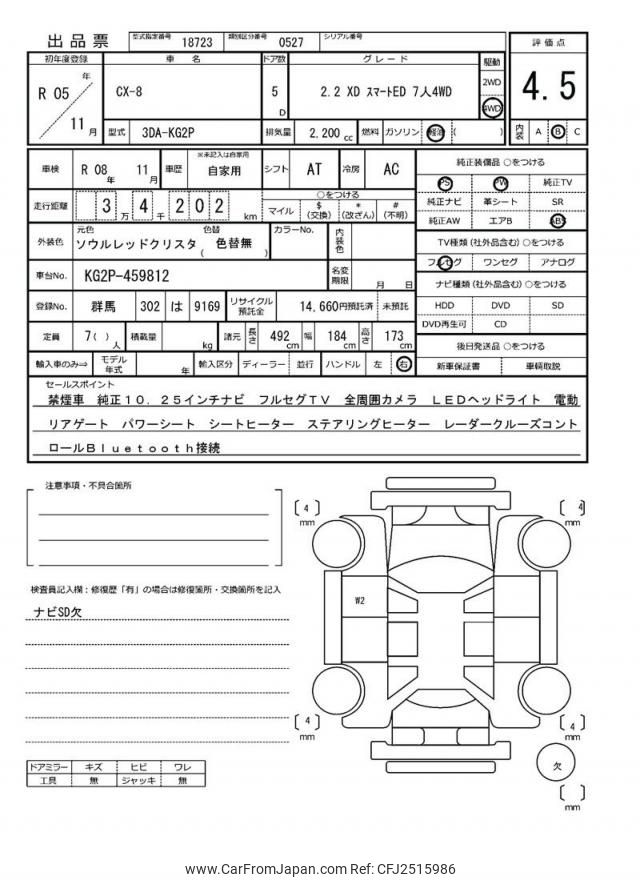 出品票 型式指定番号 18723 類別区分番号 0527 シリアル番号
評価点
4.5
内装 A B C
初年度登録 車名 ドア数 グレード 駆動
R 05 年 11 月
CX-8 5 D 2.2 XD スマートED 7人4WD 2WD 4WD
型式 3DA-KG2P 排気量 2,200 cc 燃料 ガソリン 軽油 ( )
車検 R 08 年 11 月 車歴 ※未記入は自家用 自家用 シフト AT 冷房 AC
走行距離 3 万 4 千 2 0 2 km
○をつける
マイル $ (交換) * (改ざん) # (不明)
外装色 元色 ソウルレッドクリスタ 色替 ( 色替無 ) カラーNo. 内装色
車台No. KG2P-459812 名変期限 月 日
登録No. 群馬 302 は 9169 リサイクル預託金 14,660円預託済 未預託
定員 7( ) 人 積載量 kg 諸元 長さ 492 cm 幅 184 cm 高さ 173 cm
輸入車のみ⇒ モデル年式 年 輸入区分 ディーラー 並行 ハンドル 左 右
純正装備品 ○をつける
PS PW 純正TV
純正ナビ 革シート SR
純正AW エアB ABS
TV種類(社外品含む) ○をつける
フルセグ ワンセグ アナログ
ナビ種類(社外品含む) ○をつける
HDD DVD SD
DVD再生可 CD
後日発送品 ○をつける
新車保証書 車輌取説
セールスポイント
禁煙車 純正10.25インチナビ フルセグTV 全周囲カメラ LEDヘッドライト 電動
リアゲート パワーシート シートヒーター ステアリングヒーター レーダークルーズコント
ロールBluetooth接続
注意事項・不具合箇所
検査員記入欄:修復歴「有」の場合は修復箇所・交換箇所を記入
ナビSD欠
ドアミラー キズ ヒビ ワレ
工具 無 ジャッキ 無
[ 4 ] mm
[ 4 ] mm
W2
[ 4 ] mm
[ 4 ] mm
欠
[ ] mm
www.CarFromJapan.com Ref: CFJ2515986